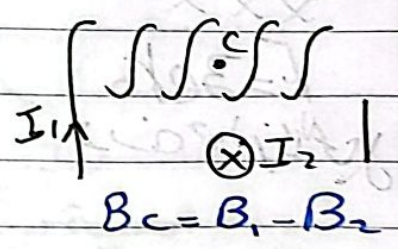 C
I₁
⊗ I₂
Bc = B₁ - B₂